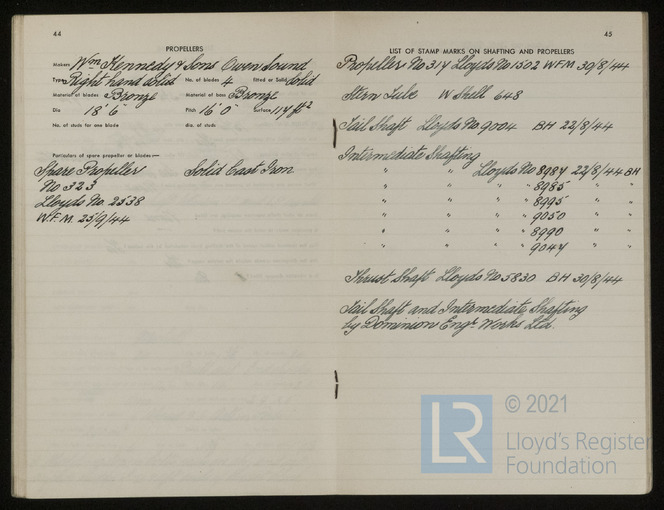 44
PROPELLERS
Makers Wm Kennedy & Sons Owen Sound
Type Right hand solid No. of blades 4 Fitted or Solid solid
Material of blades Bronze Material of boss Bronze
Dia 18' 6" Pitch 16' 0" Surface 114 ft²
No. of studs for one blade dia. of studs
Particulars of spare propeller or blades:—
Spare Propeller Solid Cast Iron
No 323
Lloyds No. 2538
W.F.M. 25/9/44
45
LIST OF STAMP MARKS ON SHAFTING AND PROPELLERS
Propeller No 314 Lloyds No 1502 W.F.M. 30/8/44
Stern Tube W Shell 648
Tail Shaft Lloyds No. 9004 BH 22/8/44
Intermediate Shafting
" " Lloyds No 8984 22/8/44 BH
" " " " 8985 " "
" " " " 8995 " "
" " " " 9050 " "
" " " " 8990 " "
" " " " 9044 " "
Thrust Shaft Lloyds No 5830 BH 30/8/44
Tail Shaft and Intermediate Shafting
by Dominion Engr Works Ltd.
LR © 2021
Lloyd's Register
Foundation